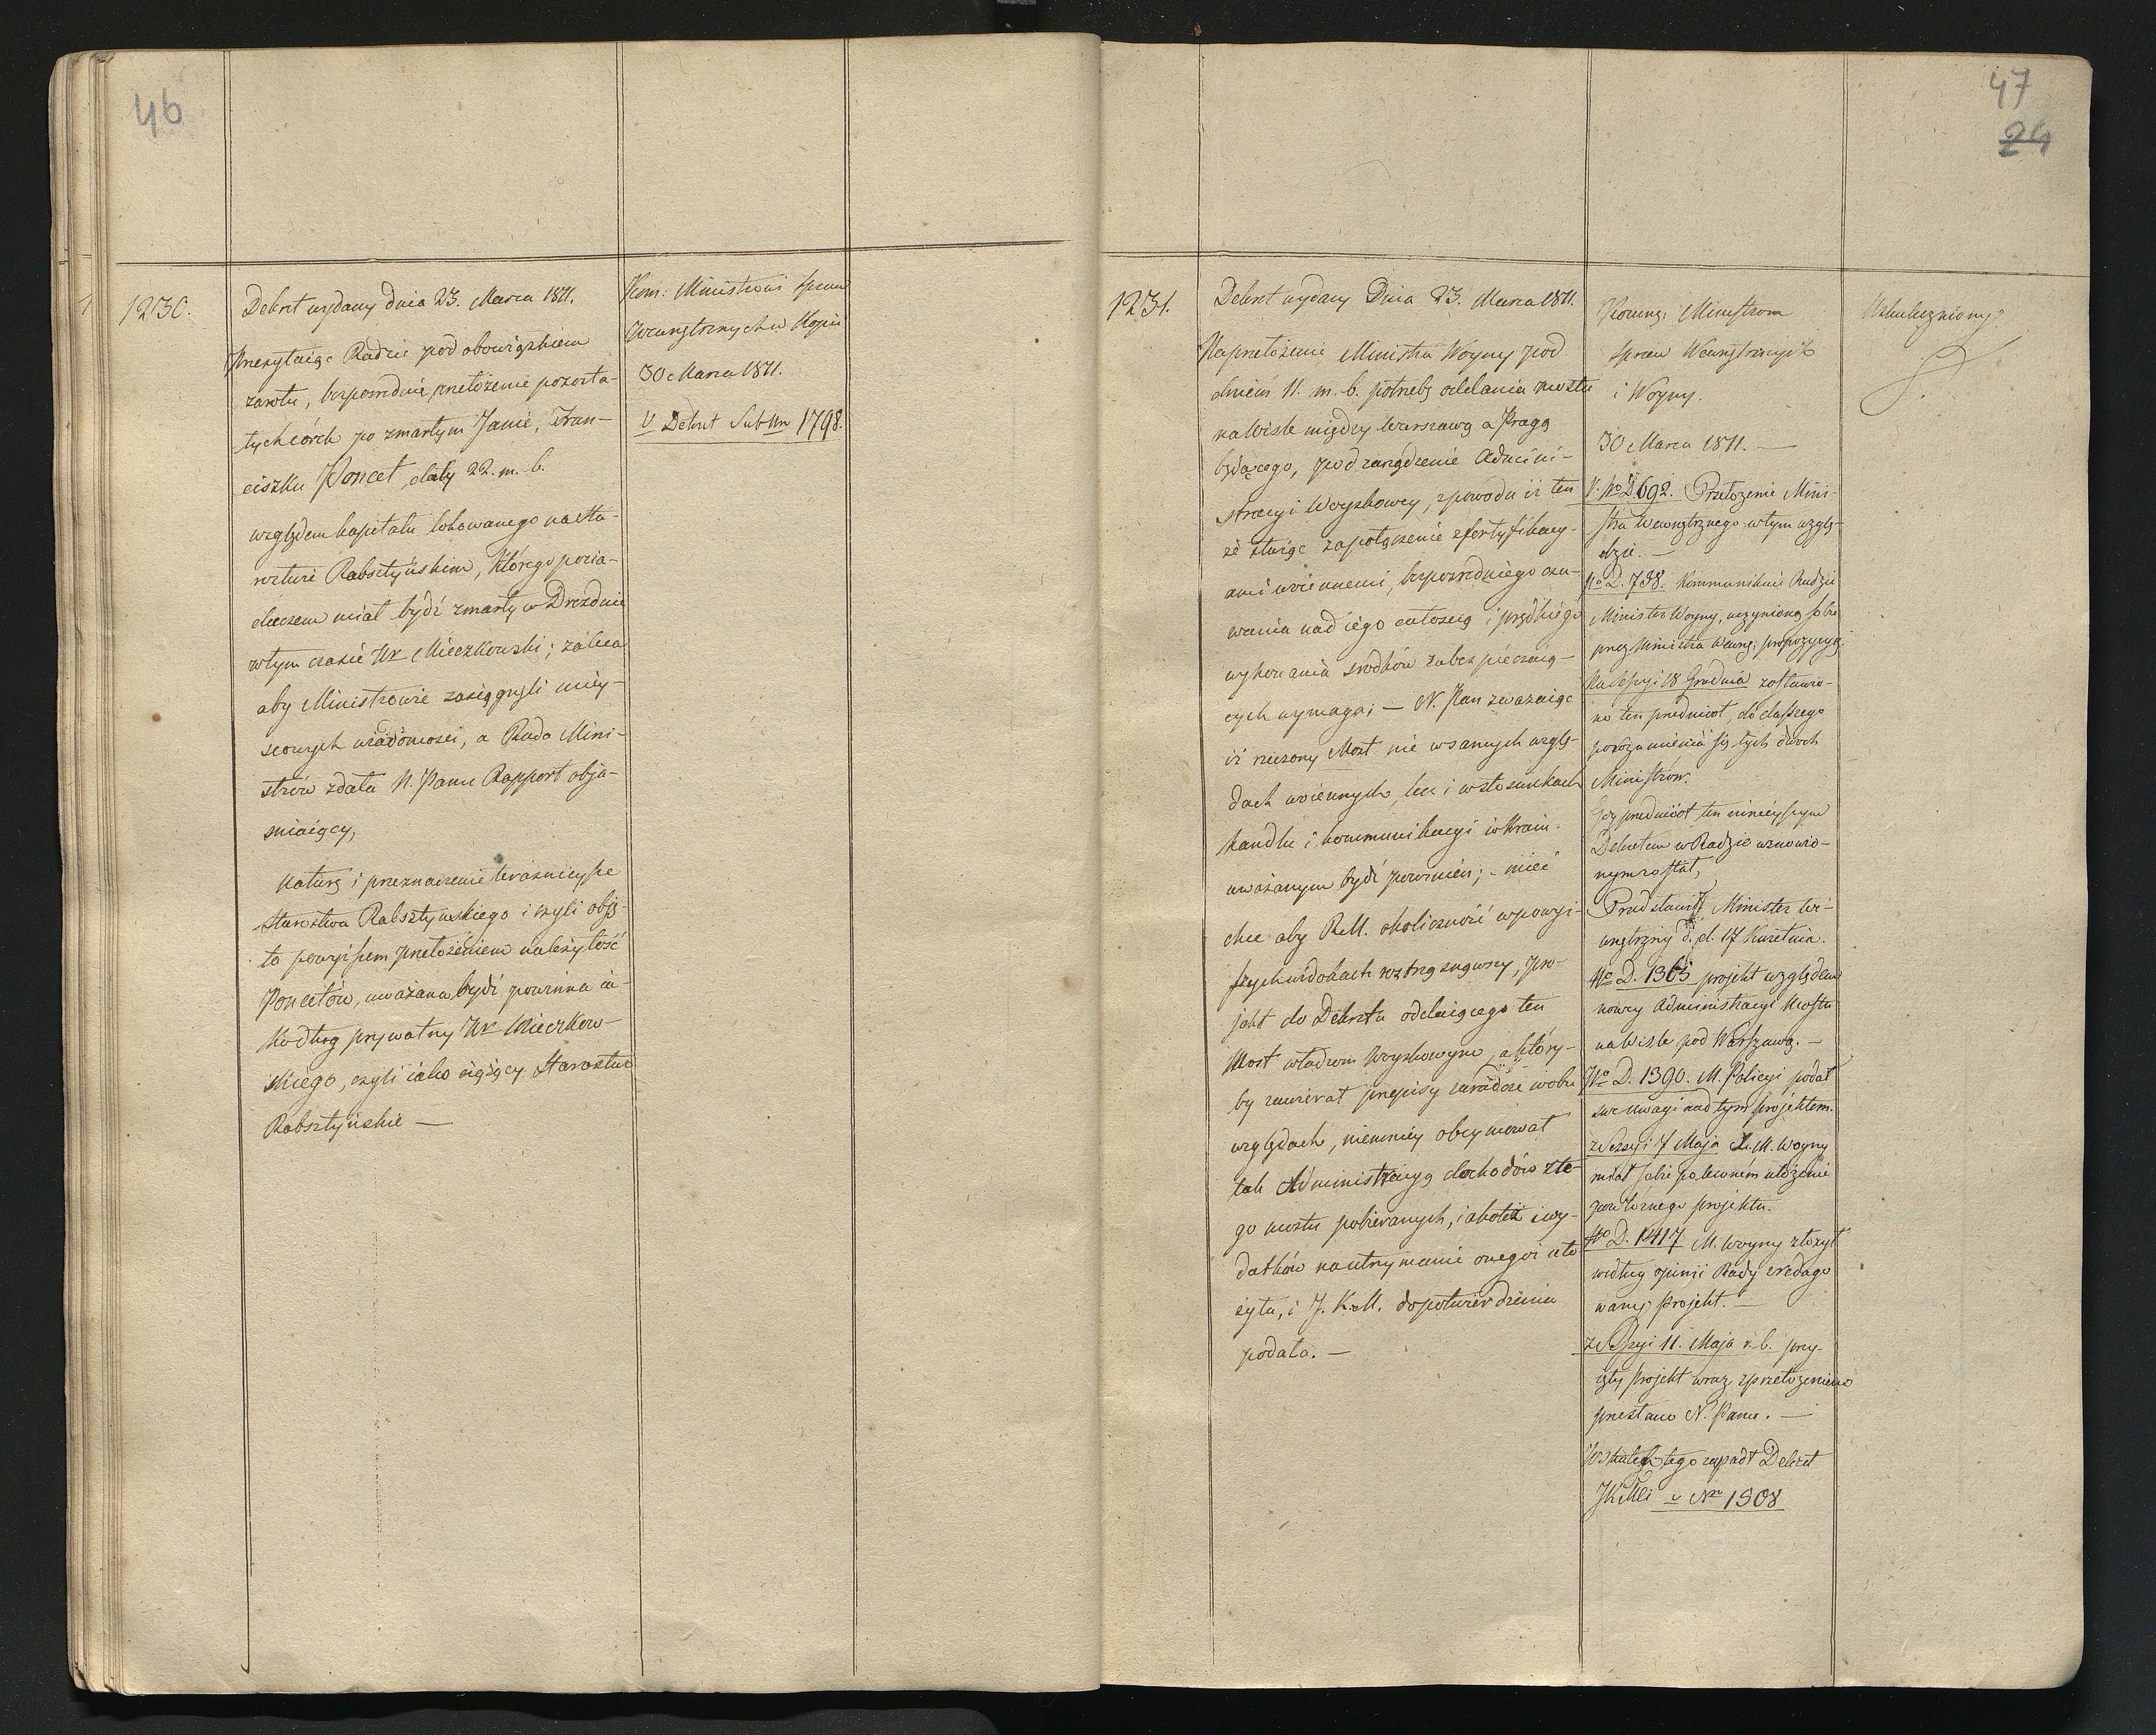 46
1230.
Dekret wydany dnia 23. Marca 1811.
Przesyłaiąc Radzie pod obowiązkiem
zwrotu, bezpośrednie przełożenie pozosta-
łych córek po zmarłym Janie, Fran-
ciszku Poncet, daty 22. m. b.
względem kapitału lokowanego na sta-
rostwie Rabsztyńskim, którego posia-
daczem miał bydź zmarły w Dreznie
w tym czasie Hr Mieczkowski; zaleca
aby Ministrowie zasięgnęli miey-
scowych wiadomości, a Rada Mini-
strów zdała N. Panu Rapport obja-
śniaiący,
naturę i przeznaczenie teraźnieysze
Starostwa Rabsztyńskiego i czyli obję-
ta powyższem przełożeniem należytość
Poncetów, uważana bydź powinna ia-
ko dług prywatny Hr Mieczkow-
skiego, czyli iako ciążący Starostwo
Rabsztyńskie —
Kom: Ministrowi Spraw
Wewnętrznych w Kopii
30 Marca 1811.
V Dekret Sub Nro 1798.
47
24
1231.
Dekret wydany Dnia 23. Marca 1811.
Na przełożenie Ministra Woyny pod
dniem 11. m. b. potrzebę oddania mostu
na Wiśle między Warszawą a Pragą
będącego, pod zarządzenie Admini-
stracyi Woyskowey, z powodu iż ten
że służąc za połączenie z fortyfikacy-
ami woiennemi, bezpośredniego czu-
wania nad iego całością i prędkiego
wykonania środków zabezpieczaią-
cych wymaga; — N. Pan zważaiąc
iż rzeczony Most nie w samych wzglę-
dach woiennych, lecz i w stosunkach
handlu i kommunikacyi w Kraiu
uważanym bydź powinien; - mieć
chce aby R.M. okoliczność w powyż-
szych widokach roztrząsnąwszy, pro-
jekt do Dekretu oddaiącego ten
Most władzom Woyskowym, a któryy-
by zawierał przepisy zaradcze w obu
względach, niemniey obeymował
tak Administracyą dochodów z te-
go mostu pobieranych, iakoteż i wy-
datków na utrzymanie onegoż uło
żyła, i J. K. M. do potwierdzenia
podała. —
Komuni: Ministrom
Spraw Wewnętrznych
i Woyny.
30 Marca 1811. —
V. No D 692. Przełożenie Mini-
stra Wewnętrznego w tym wzglę-
dzie. —
No D. 738. Kommunikuie Radzie
Minister Woyny, uczynioną sobie
przez Ministra Wewnę: propozycyą.
Na Sessyi 18 Grudnia zostawio-
no ten przedmiot, do dalszego
porozumienia się tych dwóch
Ministrów.
Gdy przedmiot ten ninieyszym
Dekretem w Radzie wznowio-
nym został,
Przedstawił Minister We-
wnętrzny d. d. 17 Kwietnia.
No D. 1365 projekt względem
nowey Administracyi Mostu
na Wiśle pod Warszawą. —
No D. 1390. M. Policyi podał
swe uwagi nad tym projektem.
z Sessyi 7 Maja M. Woyny
miał sobie poleconém ułożenie
powtórnego projektu.
No D. 1417 M. Woyny złożył
według opinii Rady zredago
wany projekt. —
z Sessyi 11. Maja r. b. przy-
ięty projekt wraz z przełożeniem
przesłano N. Panu. —
W skutek tego zapadł Dekret
JKMci v Nro 1908
Uskuteczniony